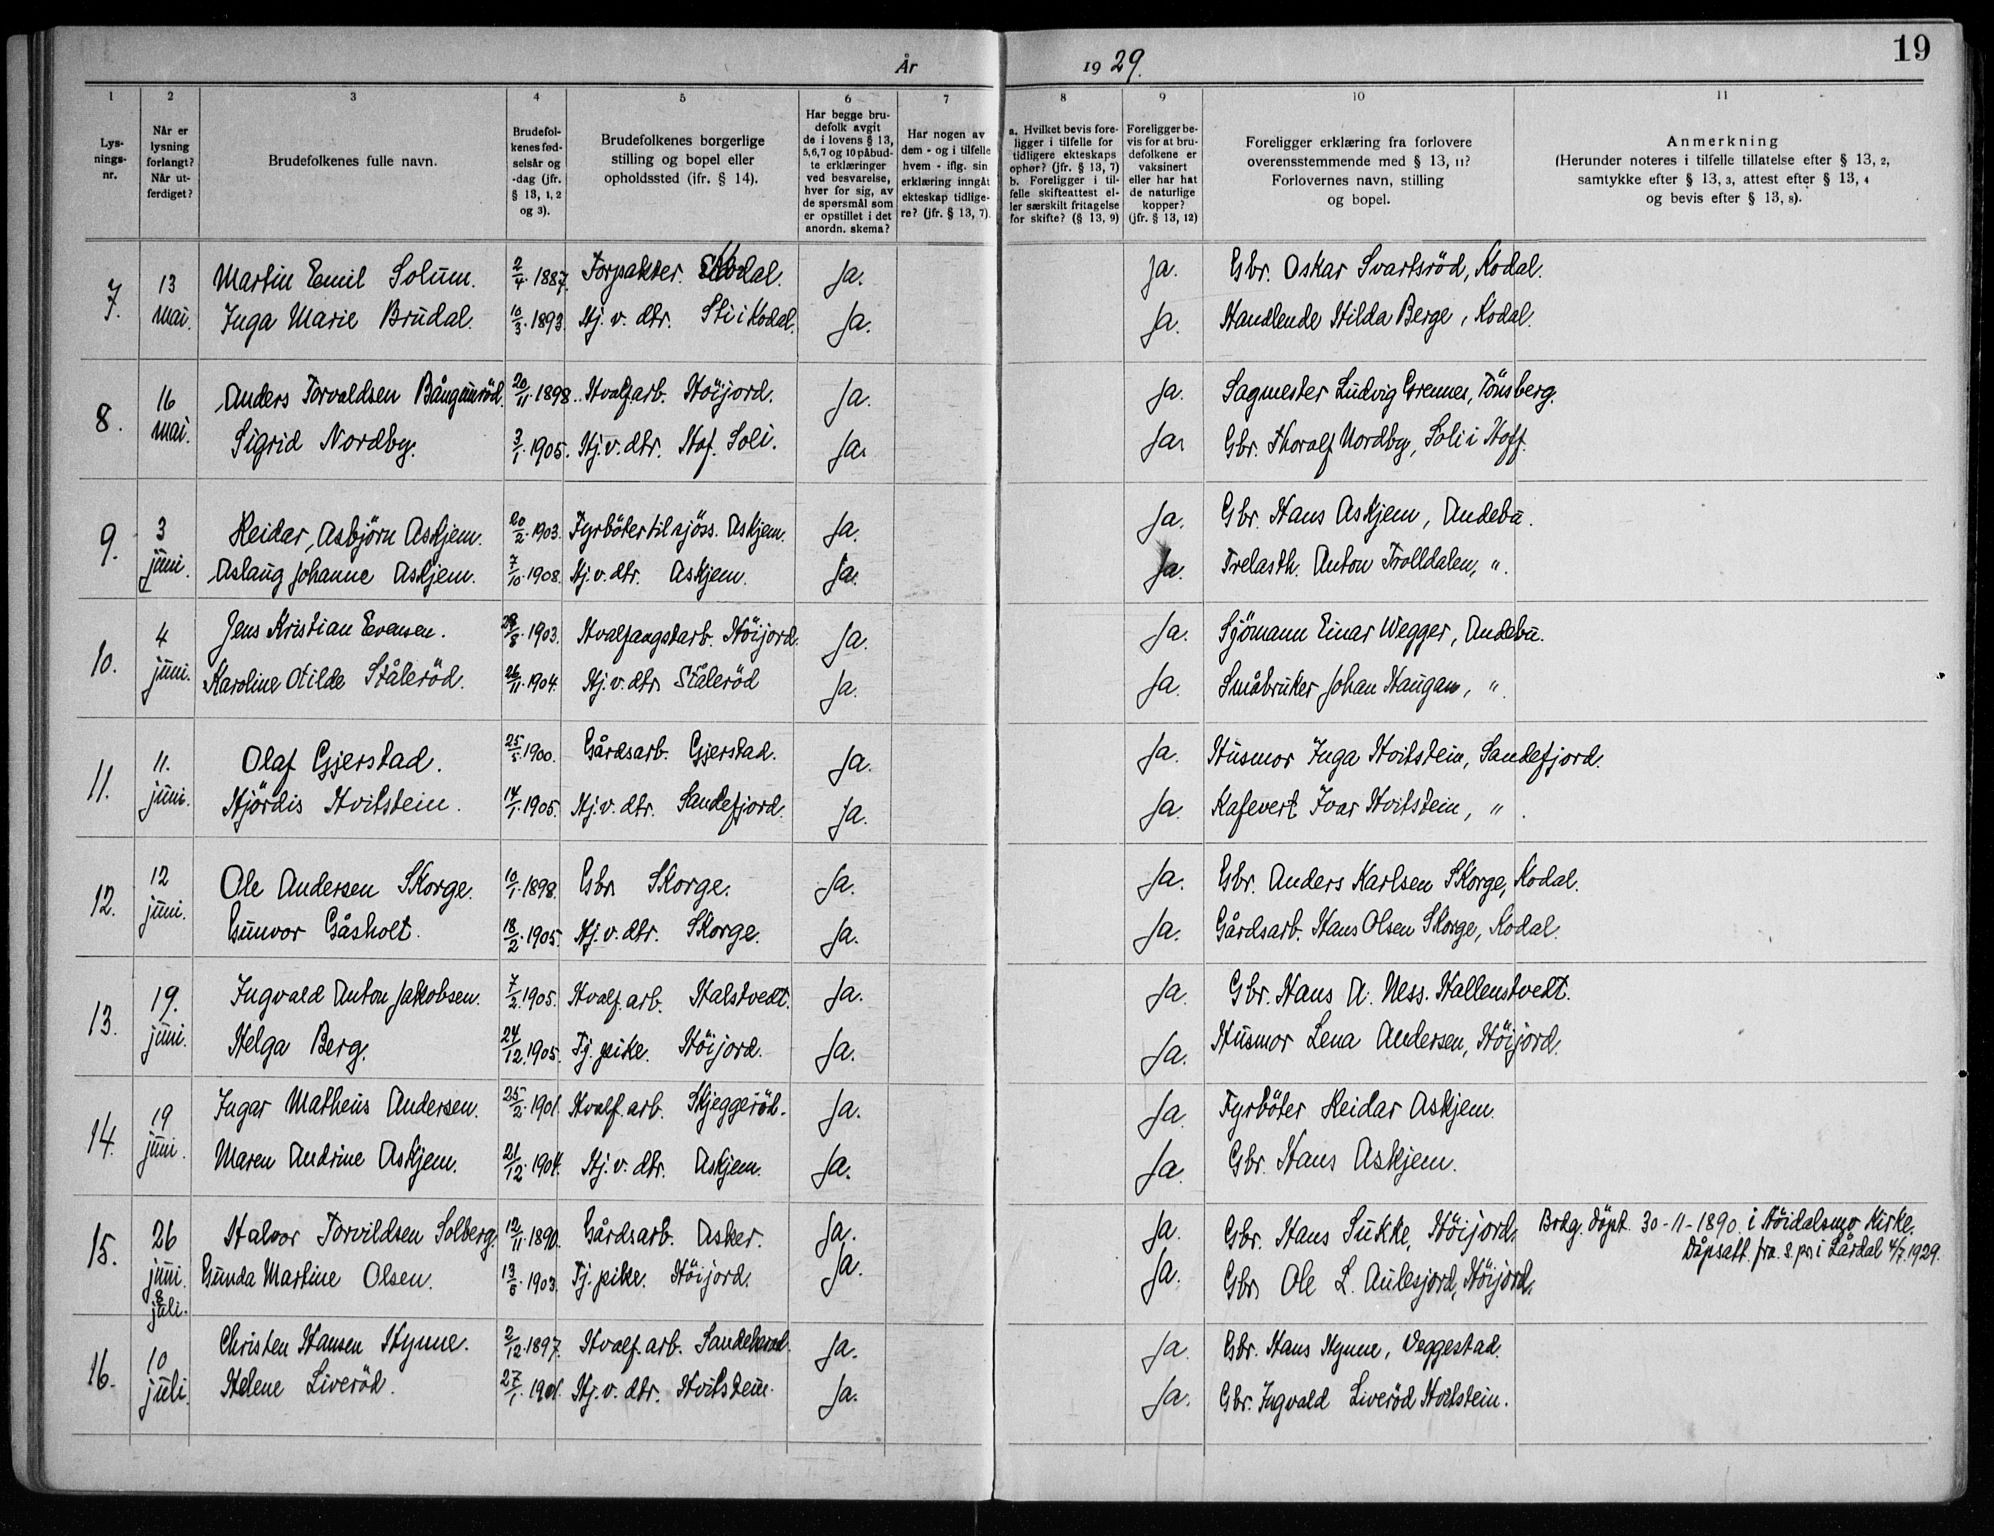 19
År 1929.
1 2 3 4 5 6 7 8 9 10 11
Lysningsnr.
Når er lysning forlangt? Når utferdiget?
Brudefolkenes fulle navn.
Brudefolkenes fødselsår og -dag (jfr. § 13, 1, 2 og 3).
Brudefolkenes borgerlige stilling og bopel eller opholdssted (jfr. § 14).
Har begge brudefolk avgit de i lovens § 13, 5, 6, 7 og 10 påbudte erklæringer ved besvarelse, hver for sig, av de spørsmål som er opstillet i det anordn. skema?
Har nogen av dem - og i tilfelle hvem - iflg. sin erklæring inngåt ekteskap tidligere? (jfr. § 13, 7).
a. Hvilket bevis foreligger i tilfelle for tidligere ekteskaps ophør? (jfr. § 13, 7) b. Foreligger i tilfelle skifteattest eller særskilt fritagelse for skifte? (§ 13, 9)
Foreligger bevis for at brudefolkene er vaksinert eller har hat de naturlige kopper? (jfr. § 13, 12)
Foreligger erklæring fra forlovere overensstemmende med § 13, 11? Forlovernes navn, stilling og bopel.
Anmerkning (Herunder noteres i tilfelle tillatelse efter § 13, 2, samtykke efter § 13, 3, attest efter § 13, 4 og bevis efter § 13, 8).
7. 13 mai. Martin Emil Solum. 2/4. 1887. Forpakter. Kodal. Ja. Ja. Gbr. Oskar Svartsröd, Kodal.
Inga Marie Brudal. 10/3. 1893. Hj. v. dtr. Sti i Kodal. Ja. Ja. Handlende Hilda Berge, Kodal.
8. 16 mai. Anders Torvaldsen Bångmröd. 20/11. 1898. Hvalf.arb. Höijord. Ja. Ja. Sagmester Ludvig Grennes, Tönsberg.
Sigrid Nordby. 3/1. 1905. Hj. v. dtr. Hof. Soli. Ja. Ja. Gbr. Thoralf Nordby, Soli i Hoff.
9. 3 juni. Reidar Asbjörn Askjem. 20/2. 1903. Fyrböter til sjöss. Askjem. Ja. Ja. Gbr. Hans Askjem, Andebu.
Aslaug Johanne Askjem. 7/10. 1908. Hj. v. dtr. Askjem. Ja. Ja. Trelasth. Anton Trolldalen, ".
10. 4 juni. Jens Kristian Evensen. 1903. Hvalfangstarb. Höijord. Ja. Ja. Sjömann Einar Wegger, Andebu.
Karoline Otilde Stålerød. 26/11. 1904. Hj. v. dtr. Stålerød Ja. Ja. Småbruker Johan Haugan, ".
11. 11. juni. Olaf Gjerstad. 25/5. 1900. Gårdsarb. Gjerstad. Ja. Ja. Husmor Inga Hvitstein, Sandefjord.
Hjördis Hvitstein. 14/1. 1905. Hj. v. dtr. Sandefjord. Ja. Ja. Kafevert Ivar Hvitstein, ".
12. 12 juni. Ole Andersen Skorge. 10/1. 1898. Gbr. Skorge. Ja. Ja. Gbr. Anders Karlsen Skorge, Kodal.
Gunvor Gåsholt. 18/2. 1905. Hj. v. dtr. Skorge. Ja. Ja. Gårdsarb. Hans Olsen Skorge, Kodal.
13. 19. juni. Ingvald Anton Jakobsen. 7/2. 1905. Hvalf. arb. Halstvedt. Ja. Ja. Gbr. Hans A. Ness. Hallenstvedt.
Helga Berg. 24/12. 1905. Tj. pike. Höijord. Ja. Ja. Husmor Lena Andersen, Höijord.
14. 19 juni. Ingar Matheus Andersen. 25/2. 1901. Hvalf. arb. Skjeggeröd. Ja. Ja. Fyrböter Reidar Askjem.
Maren Andrine Askjem. 21/12. 1904. Hj. v. dtr. Askjem. Ja. Ja. Gbr. Hans Askjem.
15. 26 juni. 8 juli. Halvor Torvildsen Solberg. 12/11. 1890. Gårdsarb. Asker. Ja. Ja. Gbr. Hans Sukke, Höijord. Brdg. döpt 30-11-1890. i Höidalsmo Kirke.
Dåpsatt. fra s.pr. i Lårdal 4/7. 1929.
Gunda Martine Olsen. 1903. Tj. pike. Höijord. Ja. Ja. Gbr. Ole L. Aulesjord, Höijord.
16. 10 juli. Christen Hansen Hynne. 2/12. 1897. Hvalf. arb. Sandeherred. Ja. Ja. Gbr. Hans Hynne, Veggestad.
Helene Liveröd. 27/1. 1901. Hj. v. dtr. Hvitstein. Ja. Ja. Gbr. Ingvald Liveröd Hvitstein.